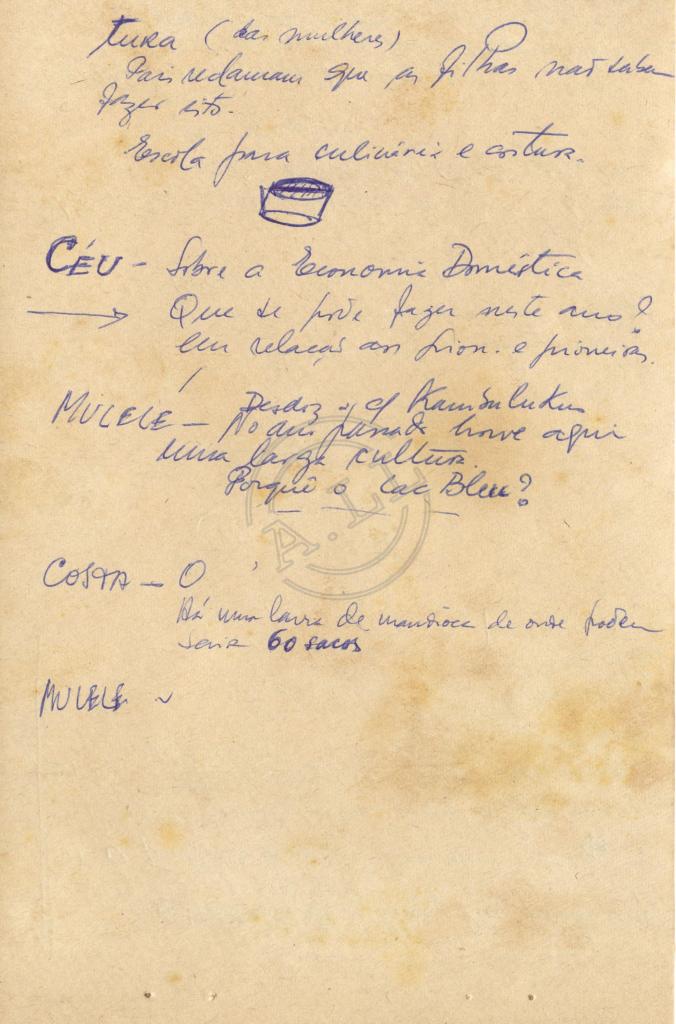 tura (das mulheres)
Pais reclamam que as filhas não sabem
fazer isto.
Escola para culinária e costura.
CÉU - Sobre a Economia Doméstica
Que se pode fazer neste ano?
Em relação aos pion. e pioneiras.
MULELE - Kambulukus
No ano passado houve aqui
uma larga cultura.
Porquê o Lac Bleu?
COSTA - O
Há uma lavra de mandioca de onde podem
60 sacos
MULELE -
A.L.